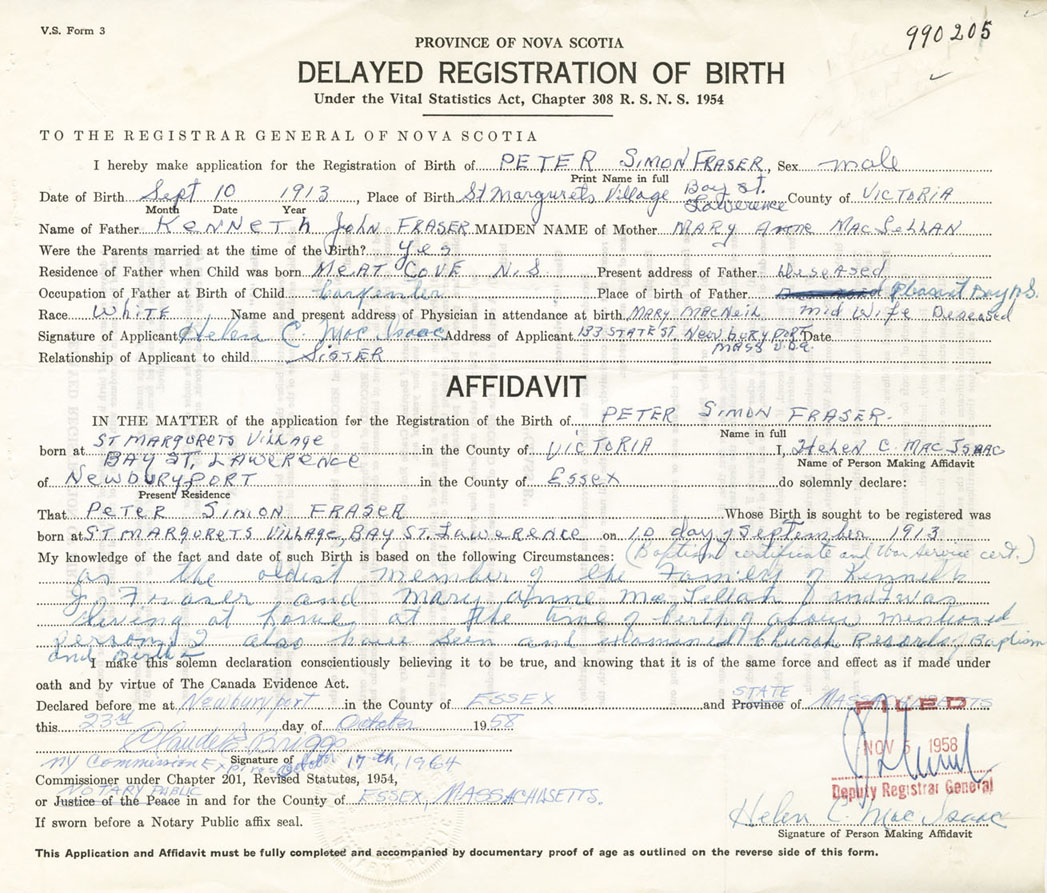 V.S. Form 3
990205
PROVINCE OF NOVA SCOTIA
DELAYED REGISTRATION OF BIRTH
Under the Vital Statistics Act, Chapter 308 R. S. N. S. 1954
TO THE REGISTRAR GENERAL OF NOVA SCOTIA
I hereby make application for the Registration of Birth of PETER SIMON FRASER, Sex male
Print Name in full
Date of Birth Sept 10 1913, Place of Birth St Margurets Village Bay St. Lawerence County of VICTORIA
Month Date Year
Name of Father KENNETH John FRASER MAIDEN NAME of Mother MARY Anne MacLELLAN
Were the Parents married at the time of the Birth? yes
Residence of Father when Child was born MEAT COVE N.S Present address of Father Deseased
Occupation of Father at Birth of Child Carpenter Place of birth of Father Pleasant Bay N.S.
Race White Name and present address of Physician in attendance at birth MARY MACNeil mid Wife Deseased
Signature of Applicant Helen C Mac Isaac Address of Applicant 133 STATE ST. Newbury PORT MASS U.S.A. Date
Relationship of Applicant to child SISTER
AFFIDAVIT
IN THE MATTER of the application for the Registration of the Birth of PETER SIMON FRASER.
Name in full
born at ST MARGURETS Village BAY ST. LAWERENCE in the County of VICTORIA I, Helen C. MAC ISAAC
Name of Person Making Affidavit
of NEWBURYPORT in the County of ESSEX do solemnly declare:
Present Residence
That PETER SIMON FRASER Whose Birth is sought to be registered was
born at ST MARGURETS VillAGE, BAY ST. LAWERENCE on 10 day of September 1913
My knowledge of the fact and date of such Birth is based on the following Circumstances: (Baptism certificate and War Service cert.)
as the oldest member of the Family of Kenneth
J. Fraser and Mary Anne Mac Lellan I was
living at home at the time of birth of above mentioned
person, I also have seen and examined Church Records of Baptism
and Birth
I make this solemn declaration conscientiously believing it to be true, and knowing that it is of the same force and effect as if made under
oath and by virtue of The Canada Evidence Act.
Declared before me at Newburyport in the County of ESSEX and STATE Province of MASSACHUSETTS
this 23rd day of October 1958
FILED
NOV 5 1958
Deputy Registrar General
Claude E Briggs
Signature of
My Commission Expires 17th, 1964
Commissioner under Chapter 201, Revised Statutes, 1954,
NOTARY PUBLIC
or Justice of the Peace in and for the County of ESSEX MASSACHUSETTS.
If sworn before a Notary Public affix seal.
Helen C. Mac Isaac
Signature of Person Making Affidavit
This Application and Affidavit must be fully completed and accompanied by documentary proof of age as outlined on the reverse side of this form.